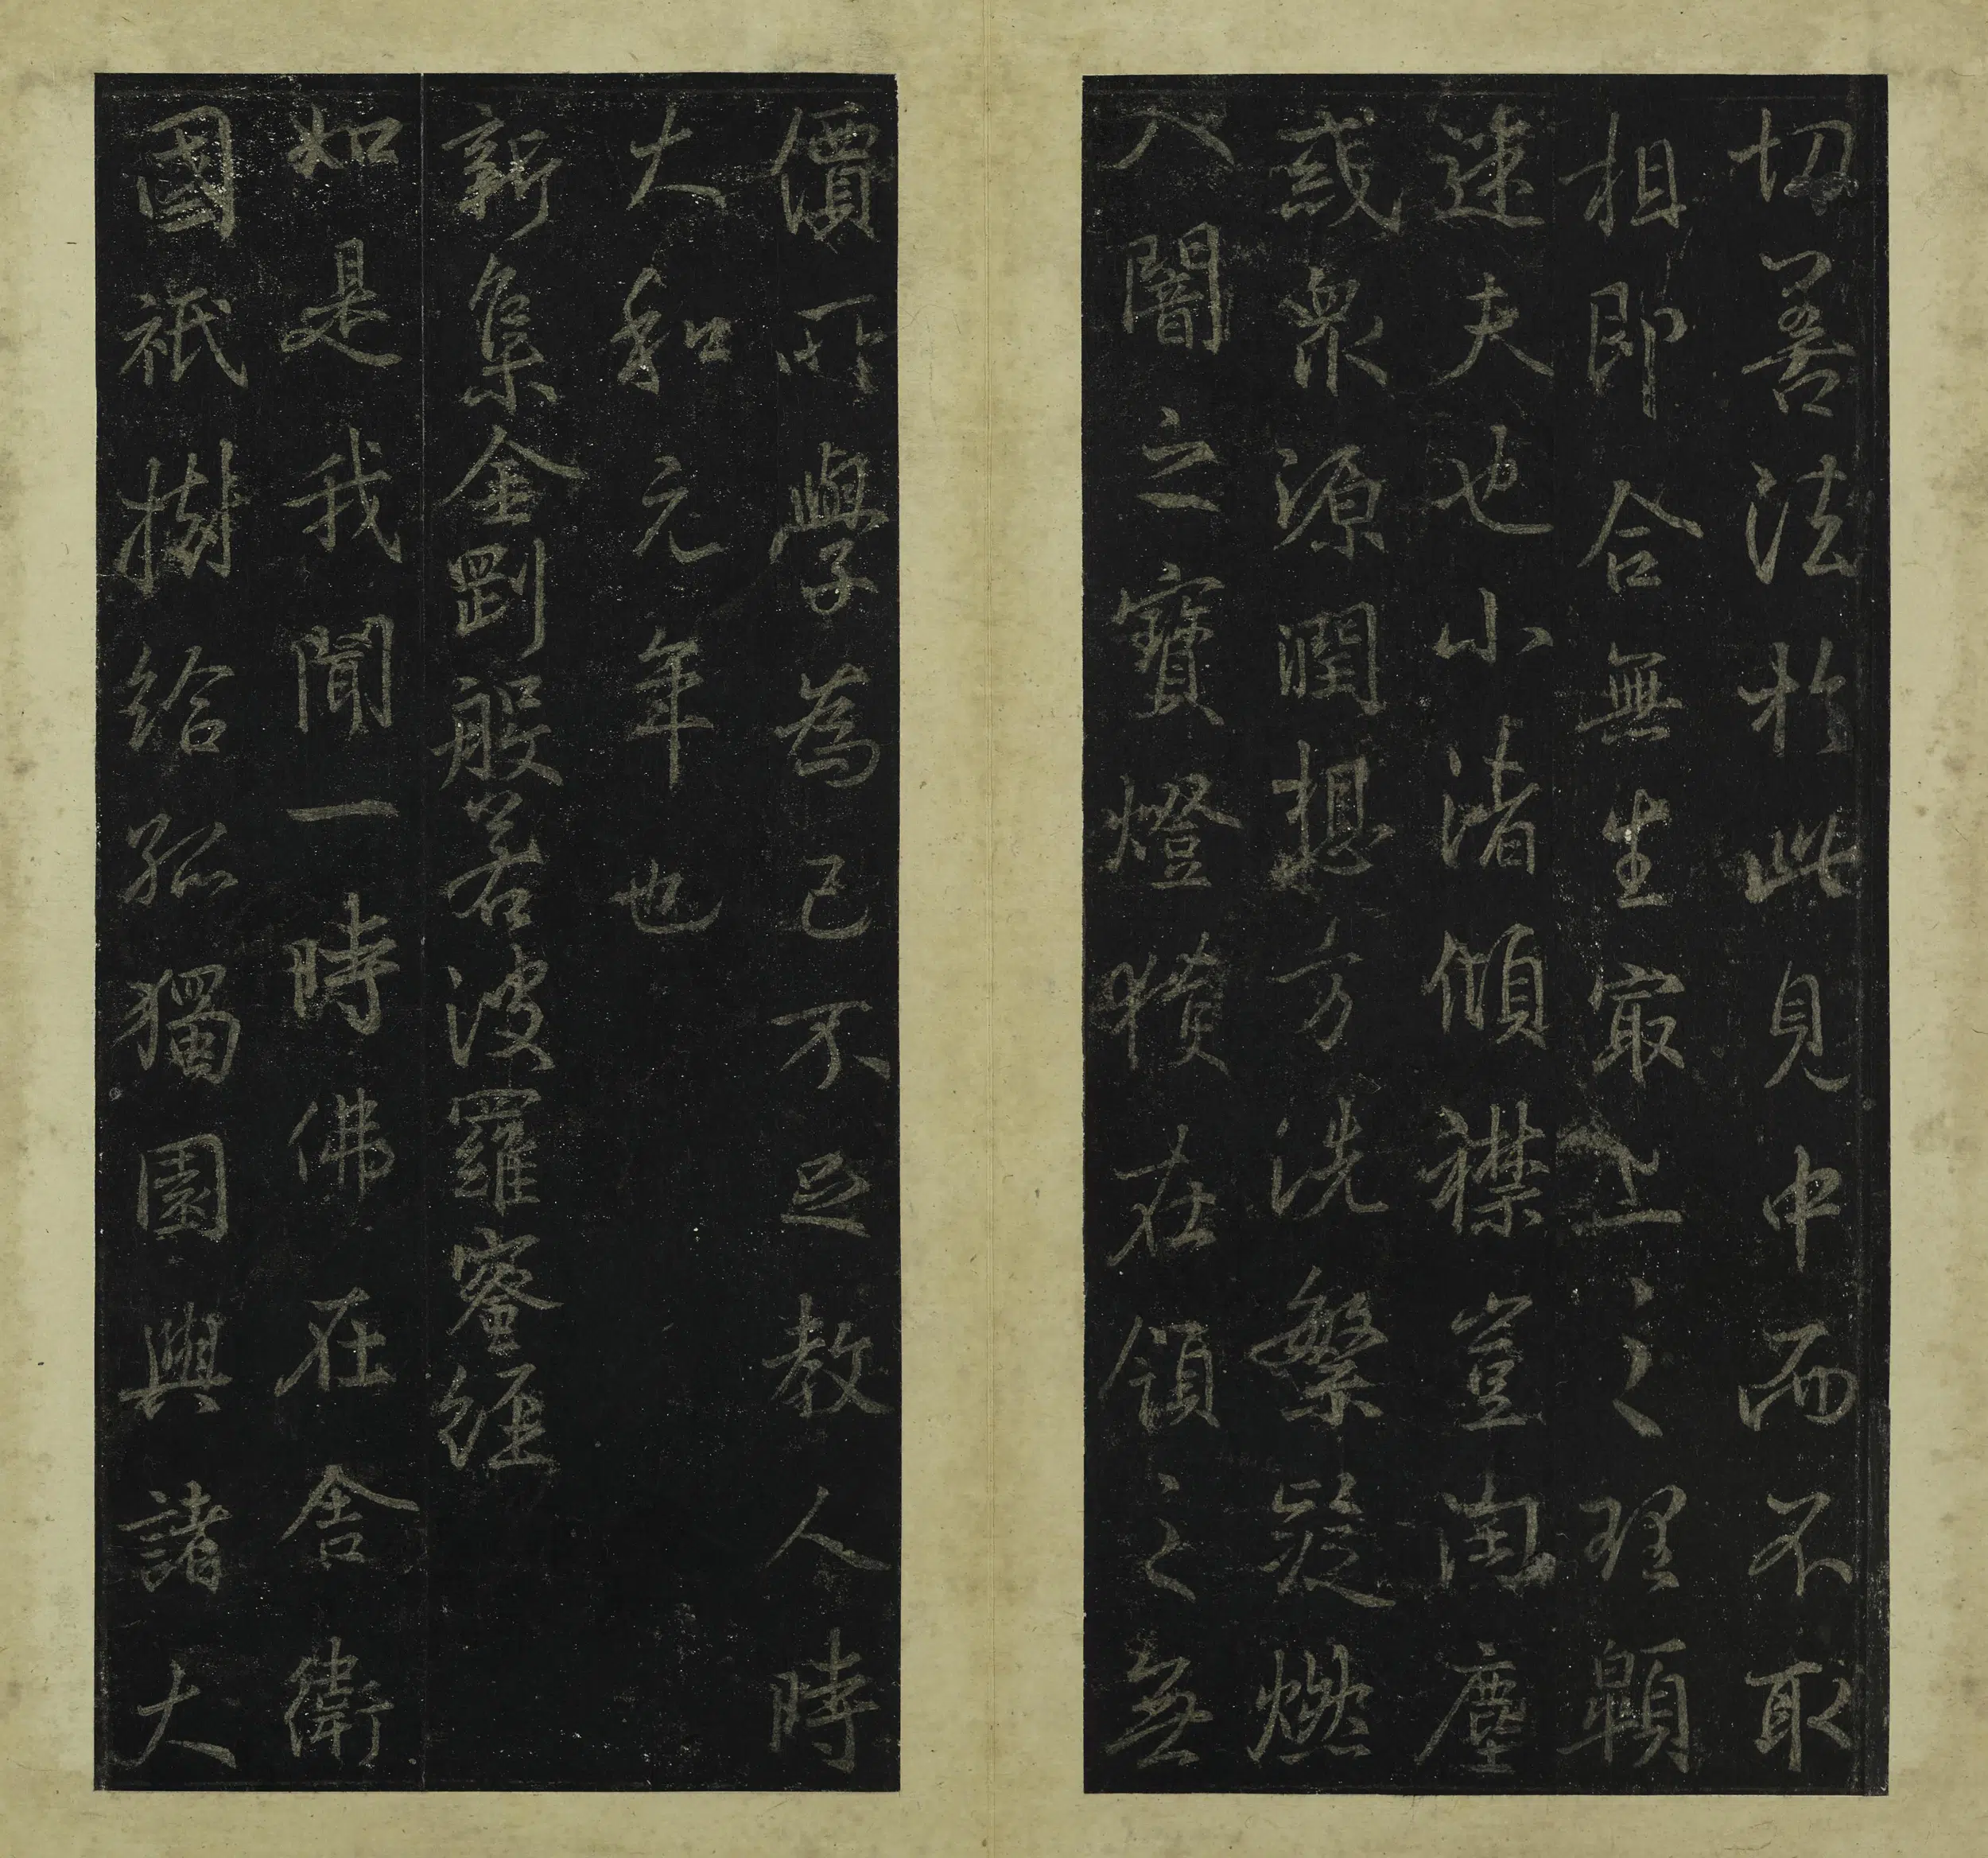 切善法於此見中而不取
相即合無生最上之理顯
迷夫也小渚傾襟豈闻塵
惑衆源潤想方洗繁疑燃
入闇之寶燈積在領之無
價所學為己不足教人時
大和元年也
新集金剛般若波羅蜜經
如是我聞一時佛在舍衛
國祇樹給孤獨園與諸大